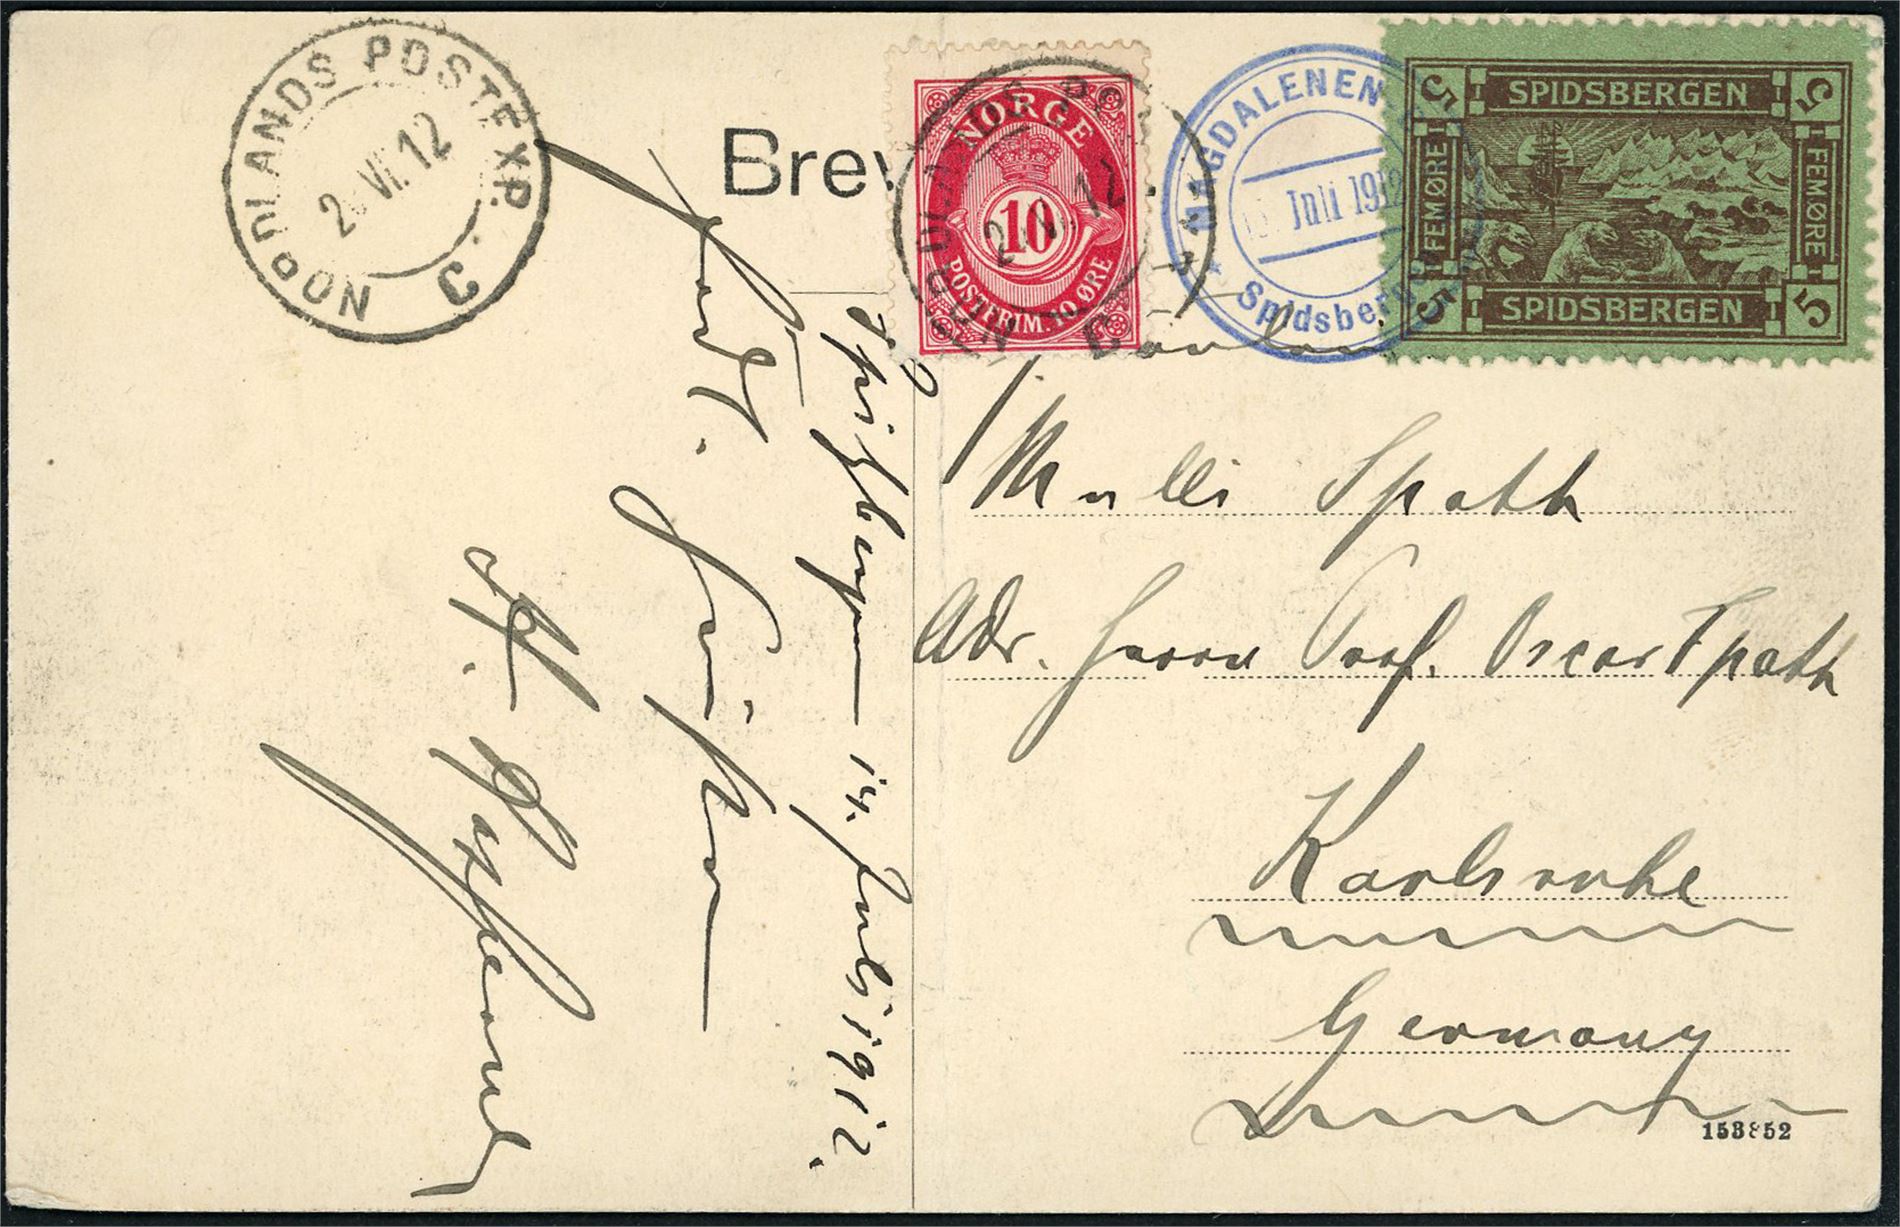 NORDLANDS POSTEXP. C
2 VII.12
Brev
NORGE
10
POSTFRIM. 10 ØRE
NORDLANDS POS C
2 12
MAGDALENEN
Juli 1912
Spidsber
SPIDSBERGEN
5 5
FEMØRE FEMØRE
5 5
SPIDSBERGEN
Spitzbergen 14. Juli 1912.
Grüßen
Mulli Spath
Adr. Herrn Prof. Oscar Spath
Karlsruhe
Germany
153852